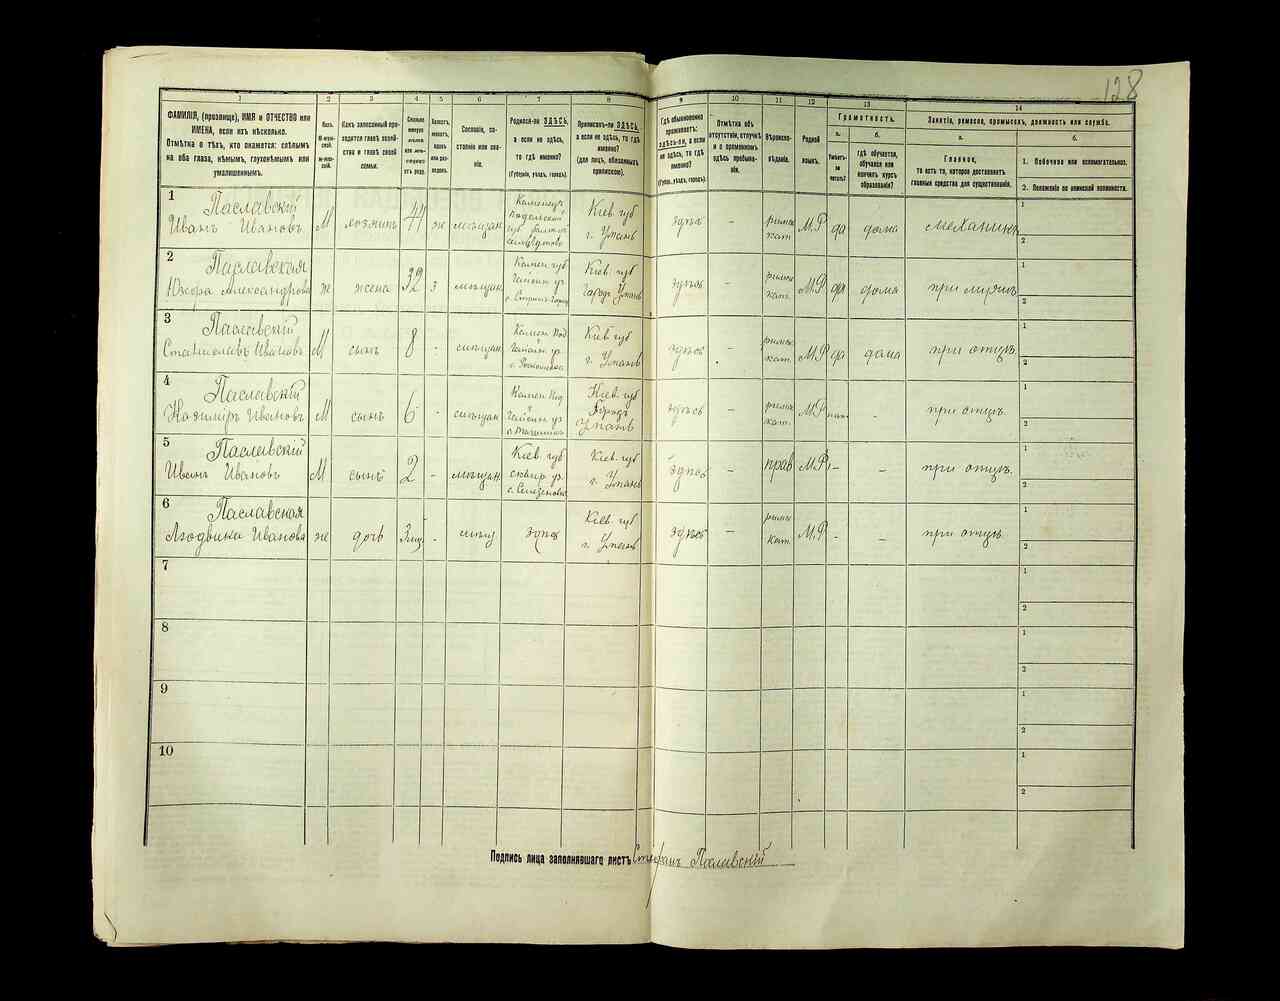 128
1 2 3 4 5 6 7 8 9 10 11 12 13 14
ФАМИЛІЯ, (прозвище), ИМЯ и ОТЧЕСТВО или
ИМЕНА, если ихъ нѣсколько.
Отмѣтка о тѣхъ, кто окажется: слѣпымъ
на оба глаза, нѣмымъ, глухонѣмымъ или
умалишеннымъ.
Полъ.
М-муж-
ской.
Ж-жен-
скій.
Какъ записанный при-
ходится главѣ хозяй-
ства и главѣ своей
семьи.
Сколько
минуло
лѣтъ
или мѣ-
сяцевъ
отъ роду.
Холостъ,
женатъ,
вдовъ
или раз-
веденъ.
Сословіе, со-
стояніе или зва-
ніе.
Родился-ли ЗДѢСЬ,
а если не здѣсь,
то гдѣ именно?
(Губернія, уѣздъ, городъ).
Приписанъ-ли ЗДѢСЬ,
а если не здѣсь, то гдѣ
именно?
(для лицъ, обязанныхъ
припискою).
Гдѣ обыкновенно
проживаетъ:
здѣсь-ли, а если
не здѣсь, то гдѣ
именно?
(Губер., уѣздъ, городъ).
Отмѣтка объ
отсутствіи, отлучкѣ
и о временномъ
здѣсь пребыва-
ніи.
Вѣроиспо-
вѣданіе.
Родной
языкъ.
Грамотность.
а.
Умѣетъ-
ли
читать?
б.
гдѣ обучается,
обучался или
кончилъ курсъ
образованія?
Занятіе, ремесло, промыселъ, должность или служба.
а.
Главное,
то есть то, которое доставляетъ
главныя средства для существованія.
б.
1. Побочное или вспомогательное.
2. Положеніе по воинской повинности.
1 Паславскій
Иванъ Ивановъ М 41 ж мѣщан
Кіев. губ
г. Умань
здѣсь – римск
кат М.Р да дома механикъ
1
2
2 Паславская
Александрова ж жена 32 з мѣщан
Кіев. губ
Город Умань
здѣсь – римск
кат. М.Р да дома
1
2
3 Паславскій
Станиславъ Ивановъ М сынъ 8 -
Кіев губ
г. Умань
здѣсь – римск
кат. М.Р да дома при отцѣ
1
2
4 Паславскій
Ивановъ М сынъ 6 -
Кіев. губ
Городъ
Умань
здѣсь – римск
кат. М.Р - при отцѣ.
1
2
5 Паславскій
Иванъ Ивановъ М сынъ 2 - мѣщан
Кіев. губ
сквир уѣ.
Кіев. губ
г. Умань
здѣсь – прав М.Р. – – при отцѣ.
1
2
6 Паславская
Людвика Ивановa ж дочь - здѣсь
Кіев. губ
г. Умань
здѣсь – римск
кат. М.Р - - при отцѣ.
1
2
7 1
2
8 1
2
9 1
2
10 1
2
Подпись лица заполнявшаго листъ Стефанъ Паславскій